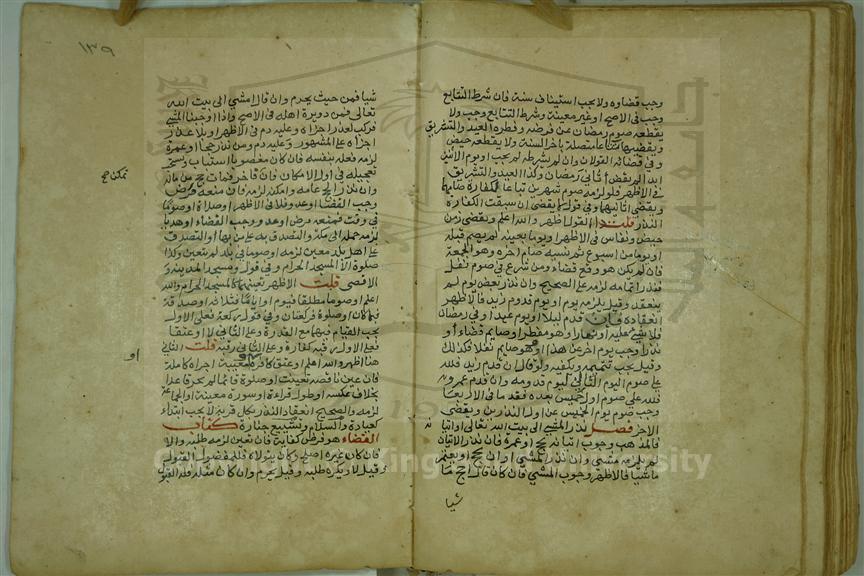 وجب قضاوه ولا يجب استيناف سنة فان شرط التتابع
وجب في الاصح او غير معينة وشرط التتابع وجب ولا
يقطعه صوم رمضان عن فرضه وفطره العيد والتشريق
ويقضيها تباعا متصلة باخر السنة ولا يقطعه حيض
وفي قضائه القولان وان لم يشرطه لم يجب او يوم الاثنين
ابدا لم يقض أثاني رمضان وكذا العيد والتشريق
في الاظهر فلو لزمه صوم شهرين تباعا لكفارة صامهما
ويقضي اثانيهما وفي قول لا يقضي ان سبقت الكفارة
النذر قلت ذا القول اظهر والله اعلم ويقضي زمن
حيض ونفاس في الاظهر او يوما بعينه لم يصم قبله
او يوما من اسبوع ثم نسيه صام اخره وهو الجمعة
فان لم يكن هو وقع قضاء ومن شرع في صوم نفل
فنذر اتمامه لزمه على الصحيح وان نذر بعض يوم لم
ينعقد وقيل يلزمه يوم او يوم قدوم زيد فالاظهر
انعقاده فان قدم ليلا او يوم عيد او في رمضان
فلا شي عليه او نهارا وهو مفطر او صايم قضاء أو
نذرا وجب يوم اخر عن هذا او وهو صايم نفلا فكذلك
وقيل يجب تتميمه ويكفيه ولو قال ان قدم زيد فلله
علي صوم اليوم التالي ليوم قدومه وان قدم عمرو
فلله علي صوم اول خميس بعده فقدما في الاربعا
وجب صوم يوم الخميس عن اول النذرين ويقضي
الاخر فصل نذر المشي الى بيت الله تعالى او اتيانه
فالمذهب وجوب اتيانه بحج او عمرة فان نذر الاتيان
لم يلزمه مشي وان نذر المشي او ان يحج او يعتمر
ماشيا فالاظهر وجوب المشي فان كان قال احج
شيا
١٣٩
شيا فمن حيث يحرم وان قال امشي الى بيت الله
تعالى فمن دويرة اهله في الاصح واذا اوجبنا المشي
فركب لعذر اجزاه وعليه دم في الاظهر او بلا عذر
اجزاه على المشهور وعليه دم ومن نذر حجا او عمرة
لزمه فعله بنفسه فان كان معضوبا استناب ويستحب
تعجيله في اول الامكان فان تمكن فاخر فمات حج من ماله
وان نذر الحج عامه وامكن لزمه فان منعه مرض
وجب القضا او عدو فلا في الاظهر او صلاة او صوما
في وقت فمنعه مرض او عدو وجب القضاء او هديا
لزمه حمله الى مكة والتصدق به على من بها او التصدق
على اهل بلد معين لزمه او صوما في بلد لم يتعين وكذا
صلوة الا المسجد الحرام وفي قول ومسجد المدينة و
الاقصى قلت الاظهر تعينهما كالمسجد الحرام والله
اعلم او صوما مطلقا فيوم او اياما فثلاثة او صدقة
فبما كان او صلوة فركعتان وفي قول ركعة فعلى الاول
يجب القيام فيها مع القدرة وعلى الثاني لا او عتقا
فعلى الاول رقبة كفارة وعلى الثاني رقبة قلت الثاني
هنا اظهر والله اعلم او عتق كافرة معيبة اجزاه كاملة
فان عين ناقصة تعينت او صلوة قائما لم يجز قاعدا
بخلاف عكسه او طول قراءة او سورة معينة او الجماعة
لزمه والصحيح انعقاد النذر بكل قربة لا تجب ابتداء
كعيادة والسلام وتشييع جنازة كتاب
القضاء هو فرض كفاية فان تعين لزمه طلبه والا
فان كان غيره اصلح وكان يتولاه فللمفضول القبول
وقيل لا ويكره طلبه وقيل يحرم وان كان مثله فله القبول
تمكن صح
او